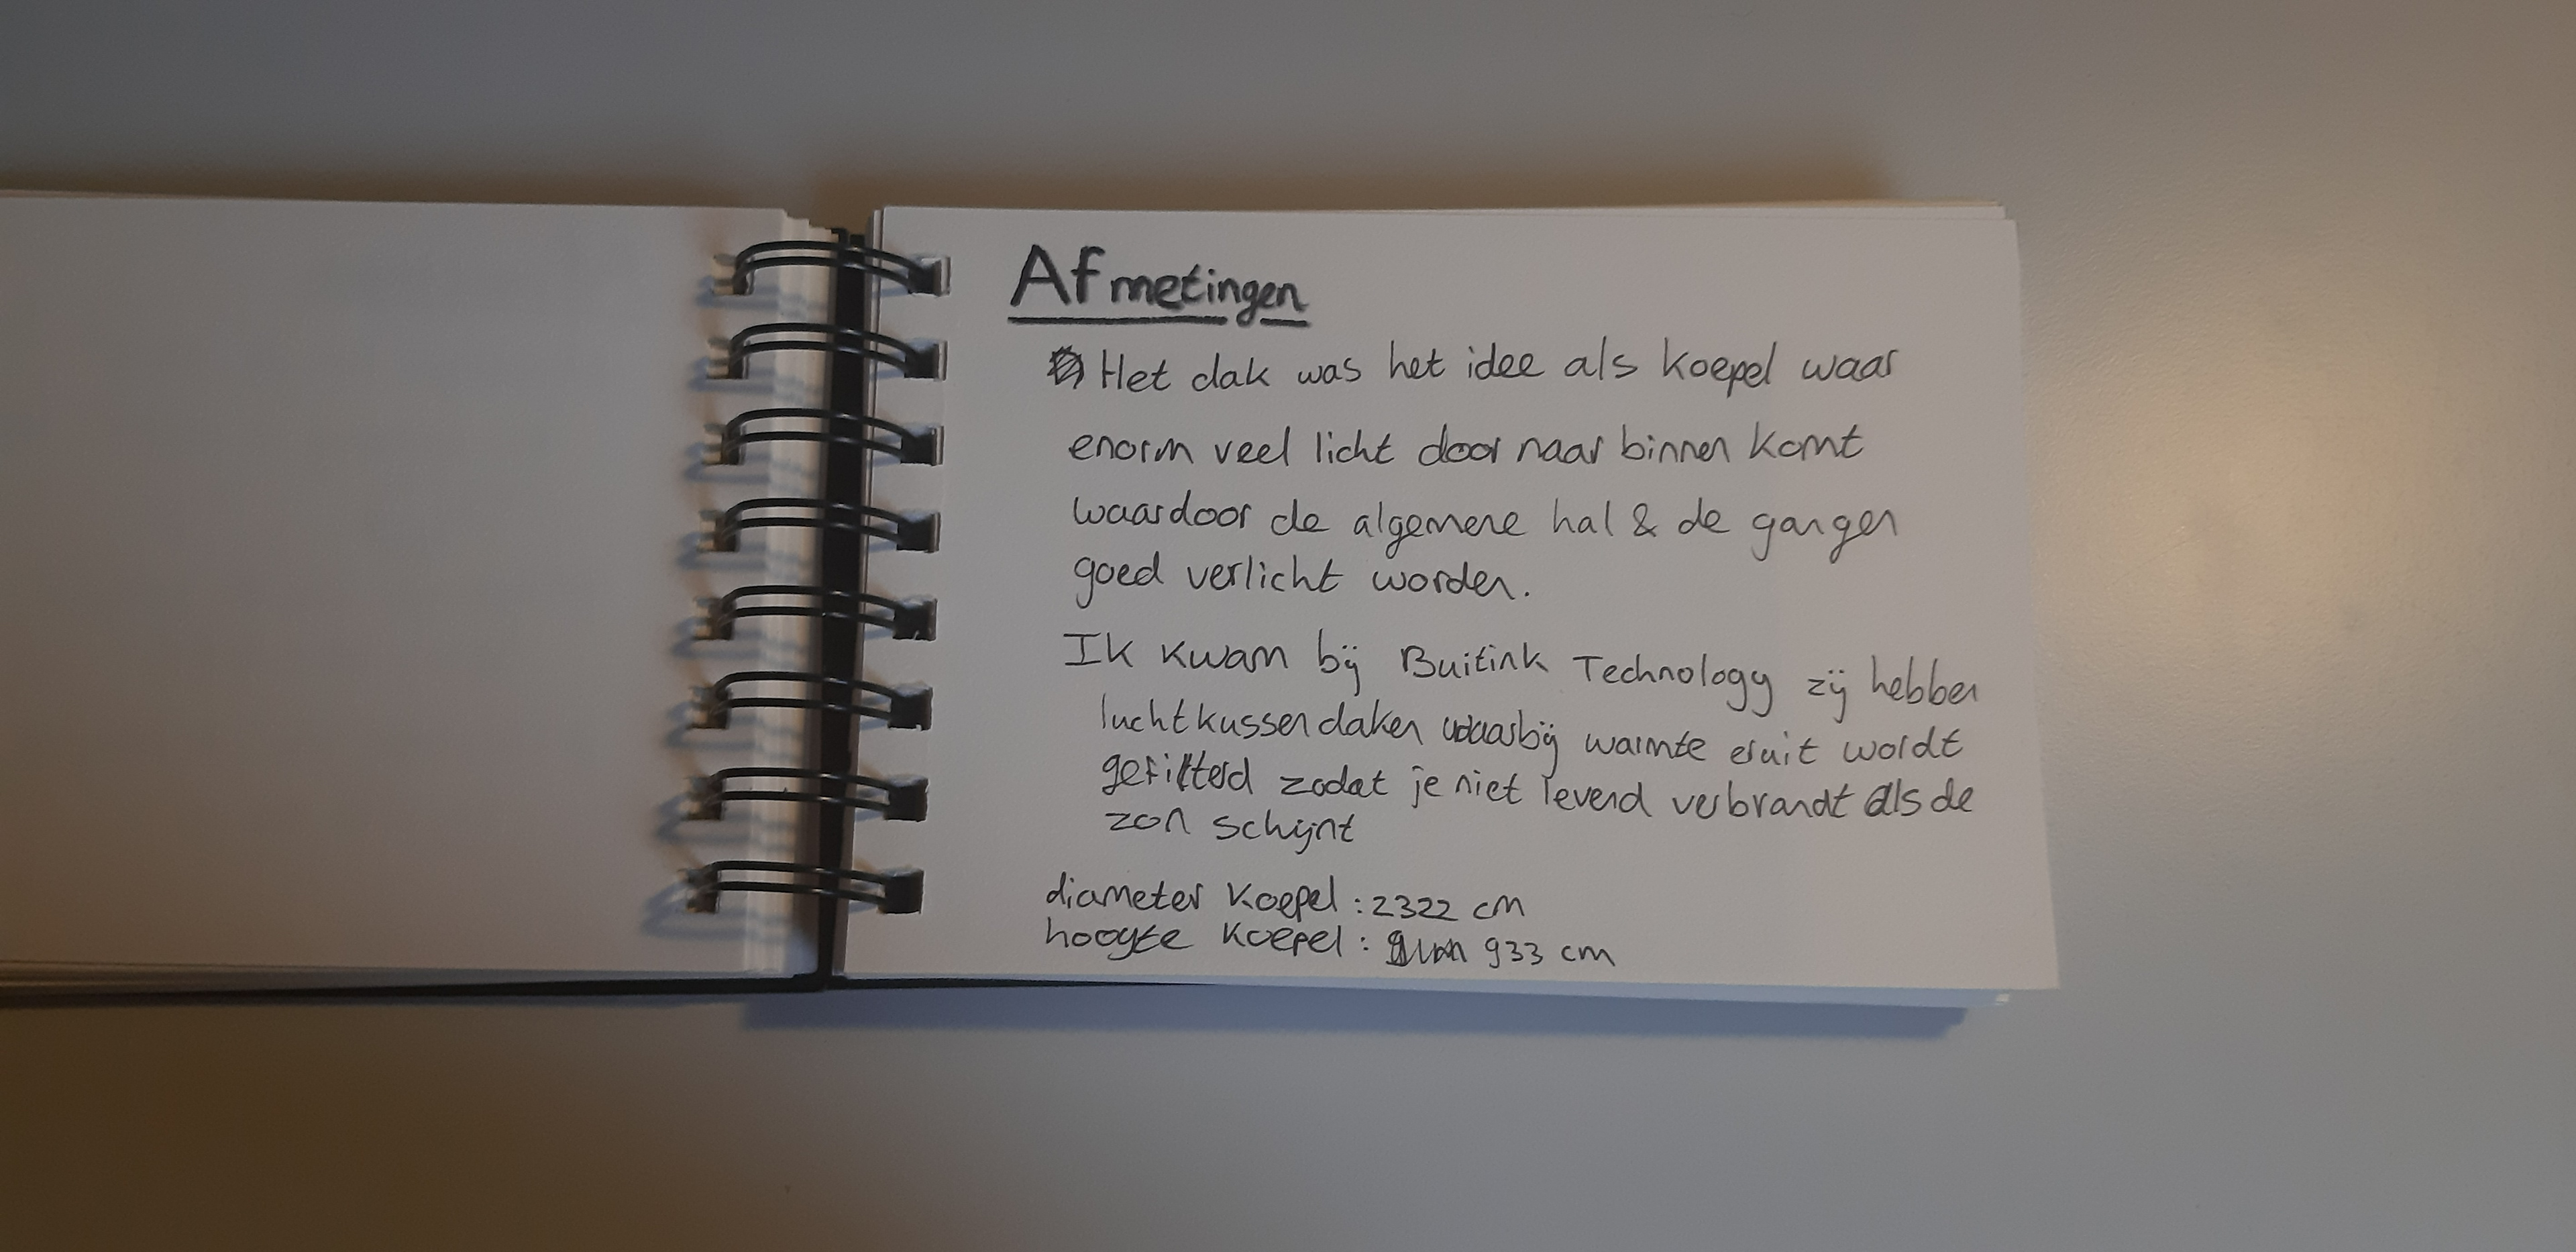 Afmetingen
Het dak was het idee als koepel waar
enorm veel licht door naar binnen komt
waardoor de algemene hal & de gangen
goed verlicht worden.
Ik kwam bij Buitink Technology zij hebben
luchtkussendaken waarbij warmte eruit wordt
gefilterd zodat je niet levend verbrandt als de
zon schijnt
diameter koepel : 2322 cm
hoogte koepel : 933 cm